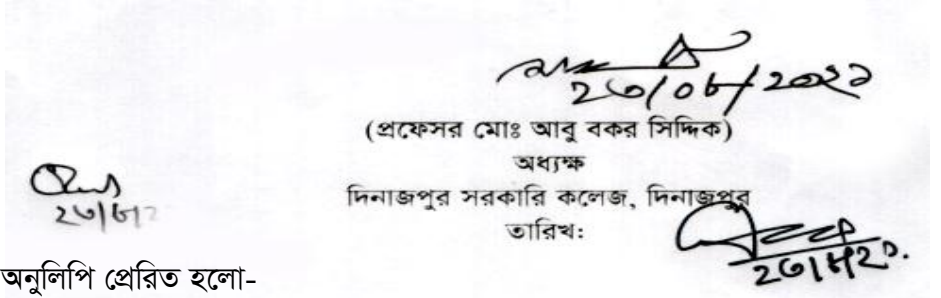 ২৩/০৮/২০২১
(প্রফেসর মোঃ আবু বকর সিদ্দিক)
অধ্যক্ষ
দিনাজপুর সরকারি কলেজ, দিনাজপুর
তারিখ:
অনুলিপি প্রেরিত হলো-